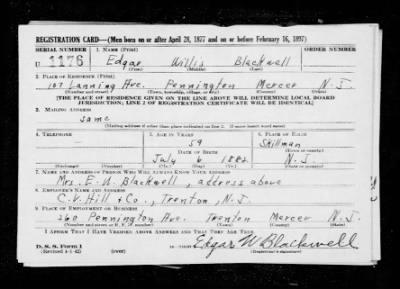 REGISTRATION CARD—(Men born on or after April 28, 1877 and on or before February 16, 1897)
SERIAL NUMBER 1. NAME (Print) ORDER NUMBER
U 1176 Edgar Willis Blackwell
(First) (Middle) (Last)
2. PLACE OF RESIDENCE (Print)
107 Lanning Ave. Pennington Mercer N.J.
(Number and street) (Town, township, village, or city) (County) (State)
[THE PLACE OF RESIDENCE GIVEN ON THE LINE ABOVE WILL DETERMINE LOCAL BOARD
JURISDICTION; LINE 2 OF REGISTRATION CERTIFICATE WILL BE IDENTICAL]
3. MAILING ADDRESS
same
(Mailing address if other than place indicated on line 2. If same insert word same)
4. TELEPHONE 5. AGE IN YEARS 6. PLACE OF BIRTH
59 Skillman
DATE OF BIRTH (Town or county)
July 6 1882 N.J.
(Exchange) (Number) (Mo.) (Day) (Yr.) (State or country)
7. NAME AND ADDRESS OF PERSON WHO WILL ALWAYS KNOW YOUR ADDRESS
Mrs. E. W. Blackwell, address above
8. EMPLOYER'S NAME AND ADDRESS
C. V. Hill & Co., Trenton, N.J.
9. PLACE OF EMPLOYMENT OR BUSINESS
360 Pennington Ave. Trenton Mercer N.J.
(Number and street or R. F. D. number) (Town) (County) (State)
I AFFIRM THAT I HAVE VERIFIED ABOVE ANSWERS AND THAT THEY ARE TRUE.
D. S. S. Form 1
(Revised 4-1-42) (over) Edgar W Blackwell
(Registrant's signature)